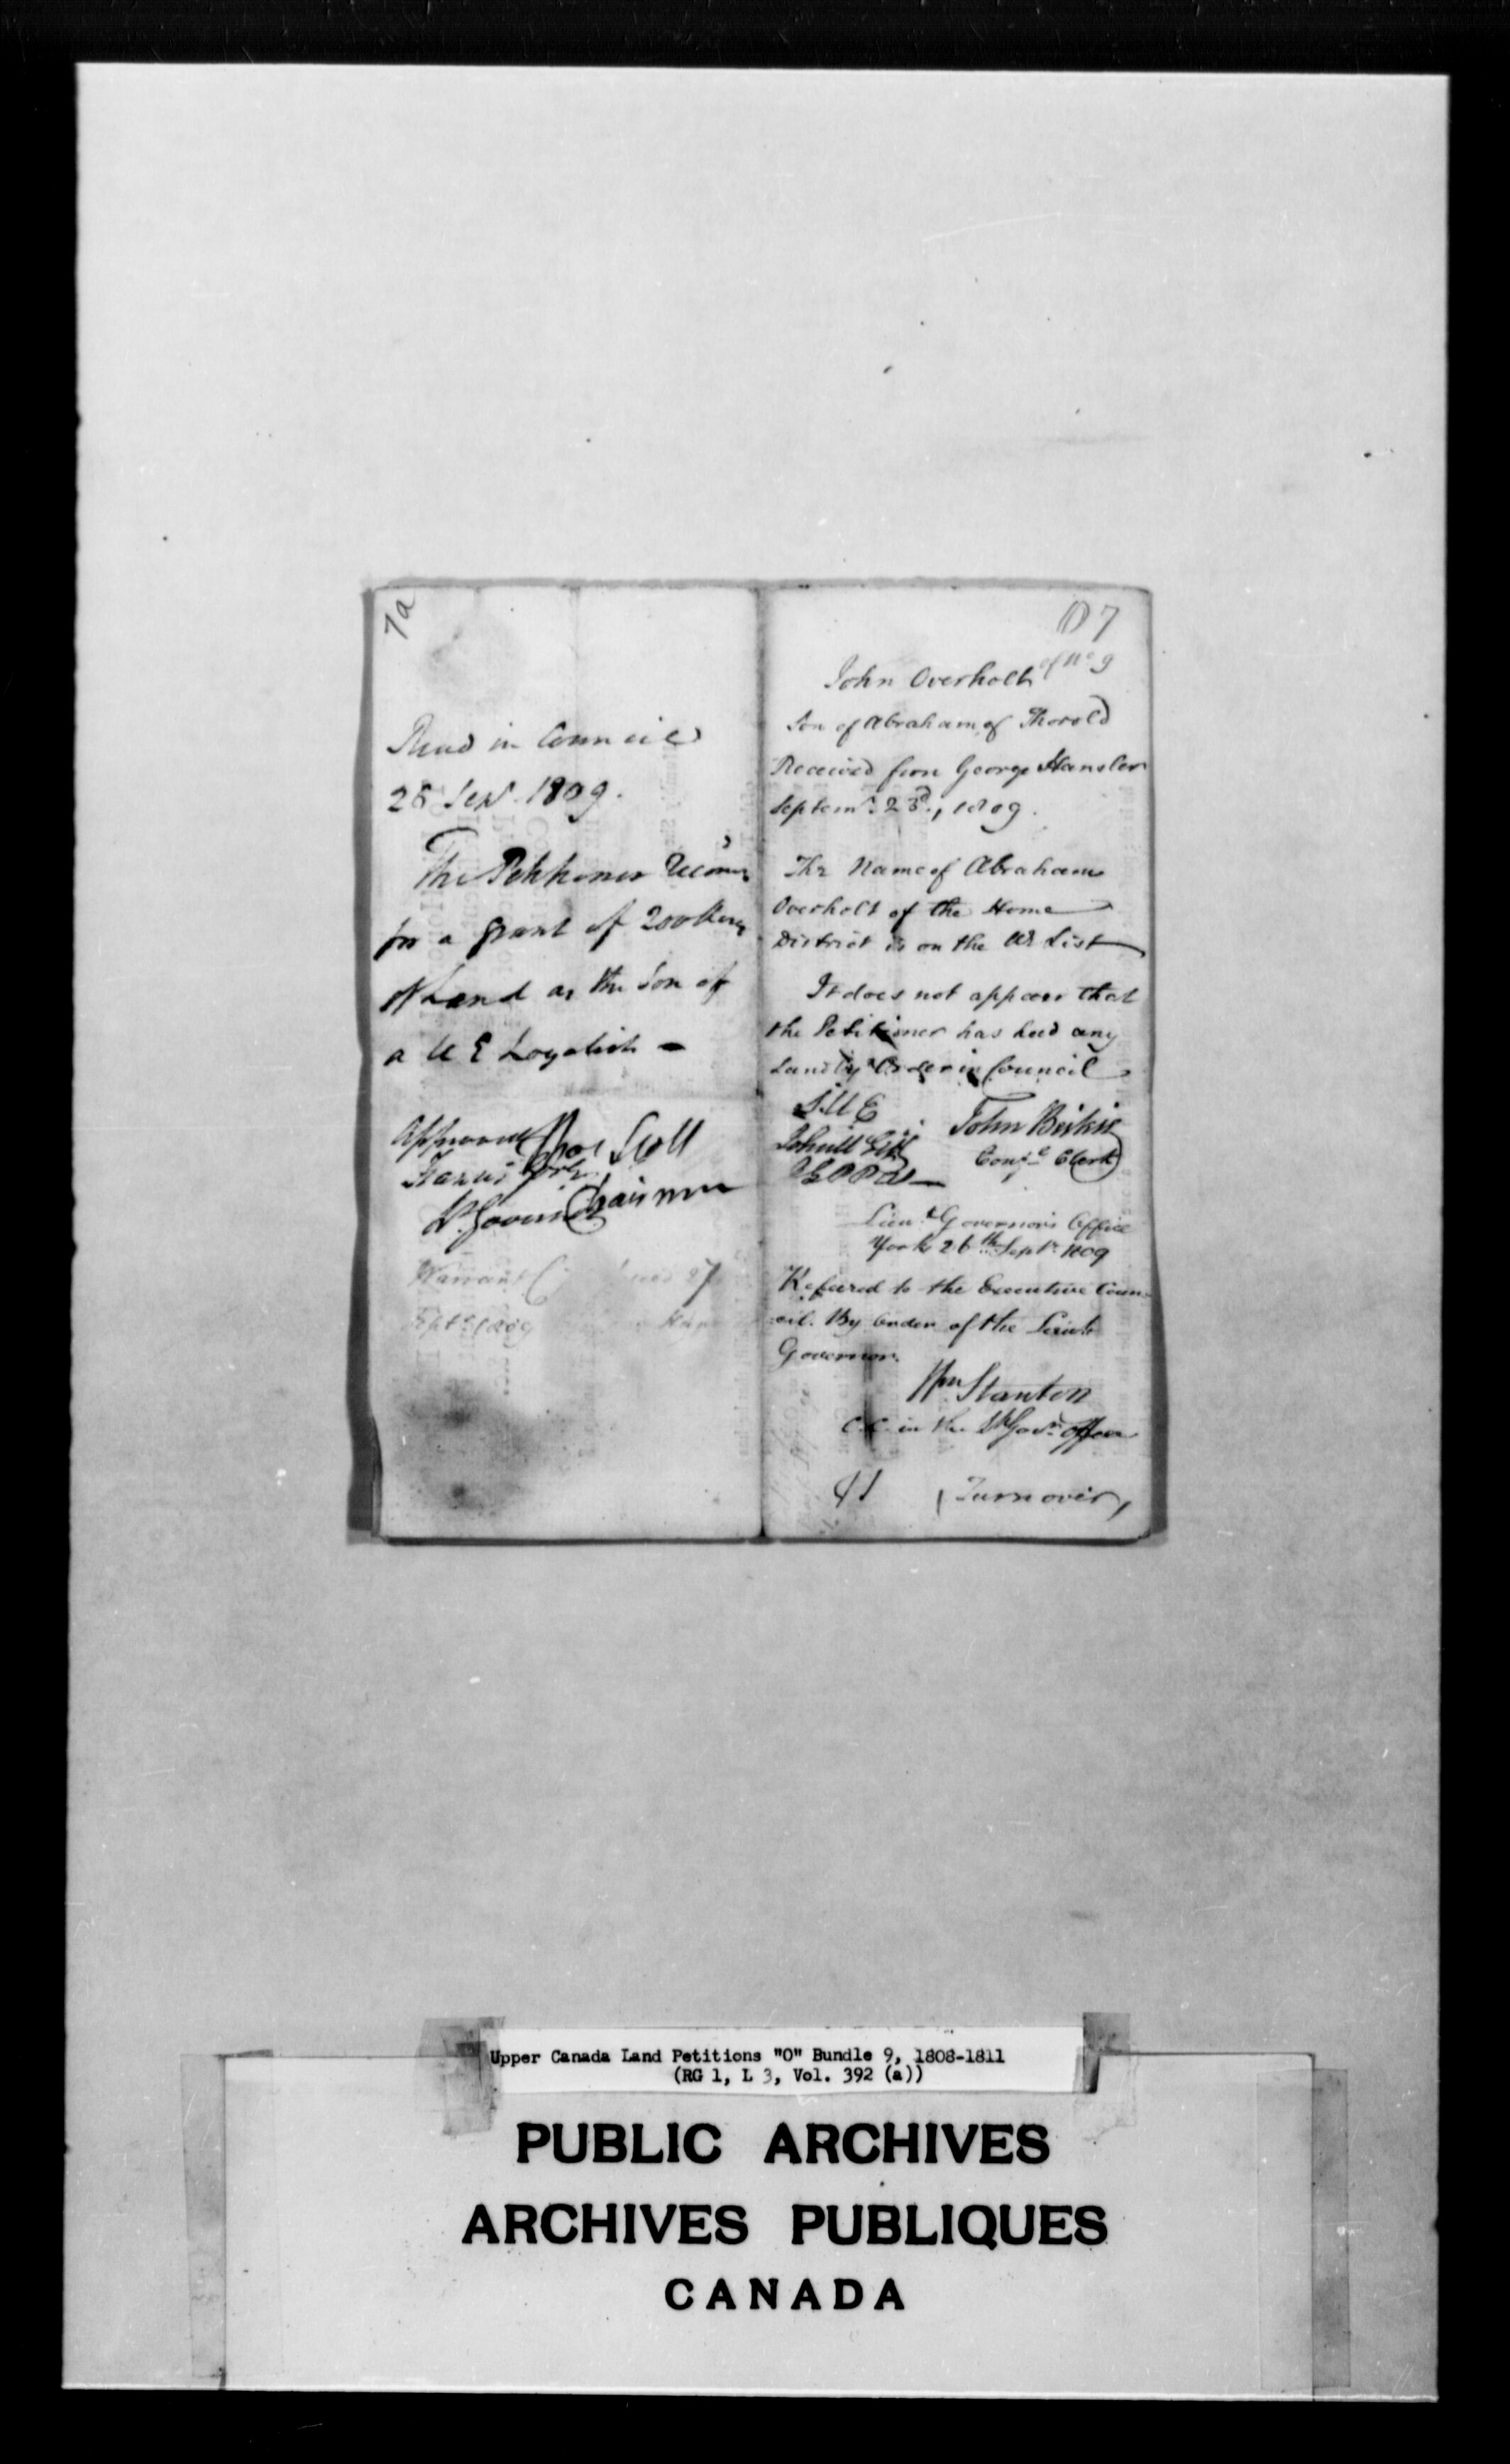 7a
Read in Council
28 Sept. 1809.
The Petitioner Recom'd
for a grant of 200 Acres
of Land as the Son of
a U E Loyalist -
Approved Thos Scott
Francis Gore
Lt Governor Chairman
Warrant issued 27
Septr 1809
O 7
of No 9
John Overholt
Son of Abraham of Thorold
Received from George Hansler
Septemr 23d, 1809.
The Name of Abraham
Overholt of the Home
District is on the UE List
It does not appear that
the Petitioner has had any
Land by Order in Council
S.U E
John Beikie
Conf.l Clerk
Lieut Governor's Office
York 26th Septr 1809
Referred to the Executive Coun-
cil. By Order of the Lieut
Governor.
Wm Stanton
C.C. in the Lt Govrs Office
41 (Turn over)
Upper Canada Land Petitions "O" Bundle 9, 1808-1811
(RG 1, L 3, Vol. 392 (a))
PUBLIC ARCHIVES
ARCHIVES PUBLIQUES
CANADA